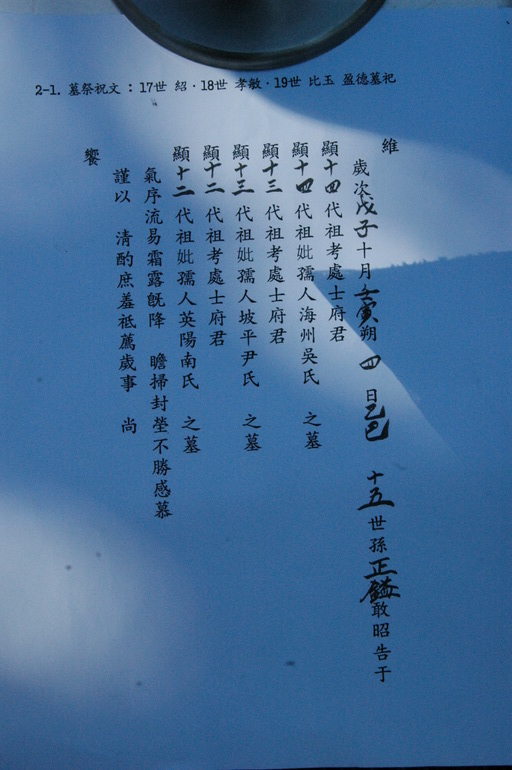 2-1. 墓祭祝文 : 17世 紹 · 18世 孝敏 · 19世 比玉 盈德墓祀
維
歲次戊子十月壬寅朔 四 日乙巳 十五 世孫 正鎰 敢昭告于
顯十四代祖考處士府君
顯十四代祖妣孺人海州吳氏 之墓
顯十三代祖考處士府君
顯十三代祖妣孺人坡平尹氏 之墓
顯十二代祖考處士府君
顯十二代祖妣孺人英陽南氏 之墓
氣序流易霜露旣降 瞻掃封塋不勝感慕
謹以 淸酌庶羞祗薦歲事 尙
饗